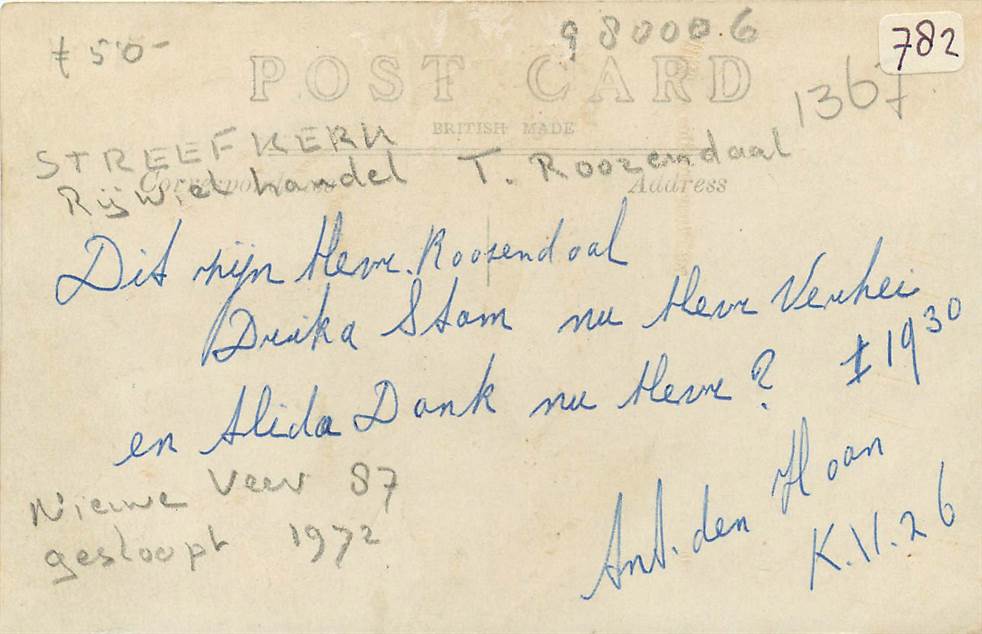 ± 50-
980006
782
POST CARD
1367
BRITISH MADE
STREEFKERK
Rijwielhandel T. Roozendaal
Correspondence Address
Dit zijn Mevr. Roozendaal
Drika Stam nu Mevr Verhei
en Alida Donk nu Mevr ? ± 1930
Nieuwe Veer 87
gesloopt 1972
Ant. den Haan
K.V. 26